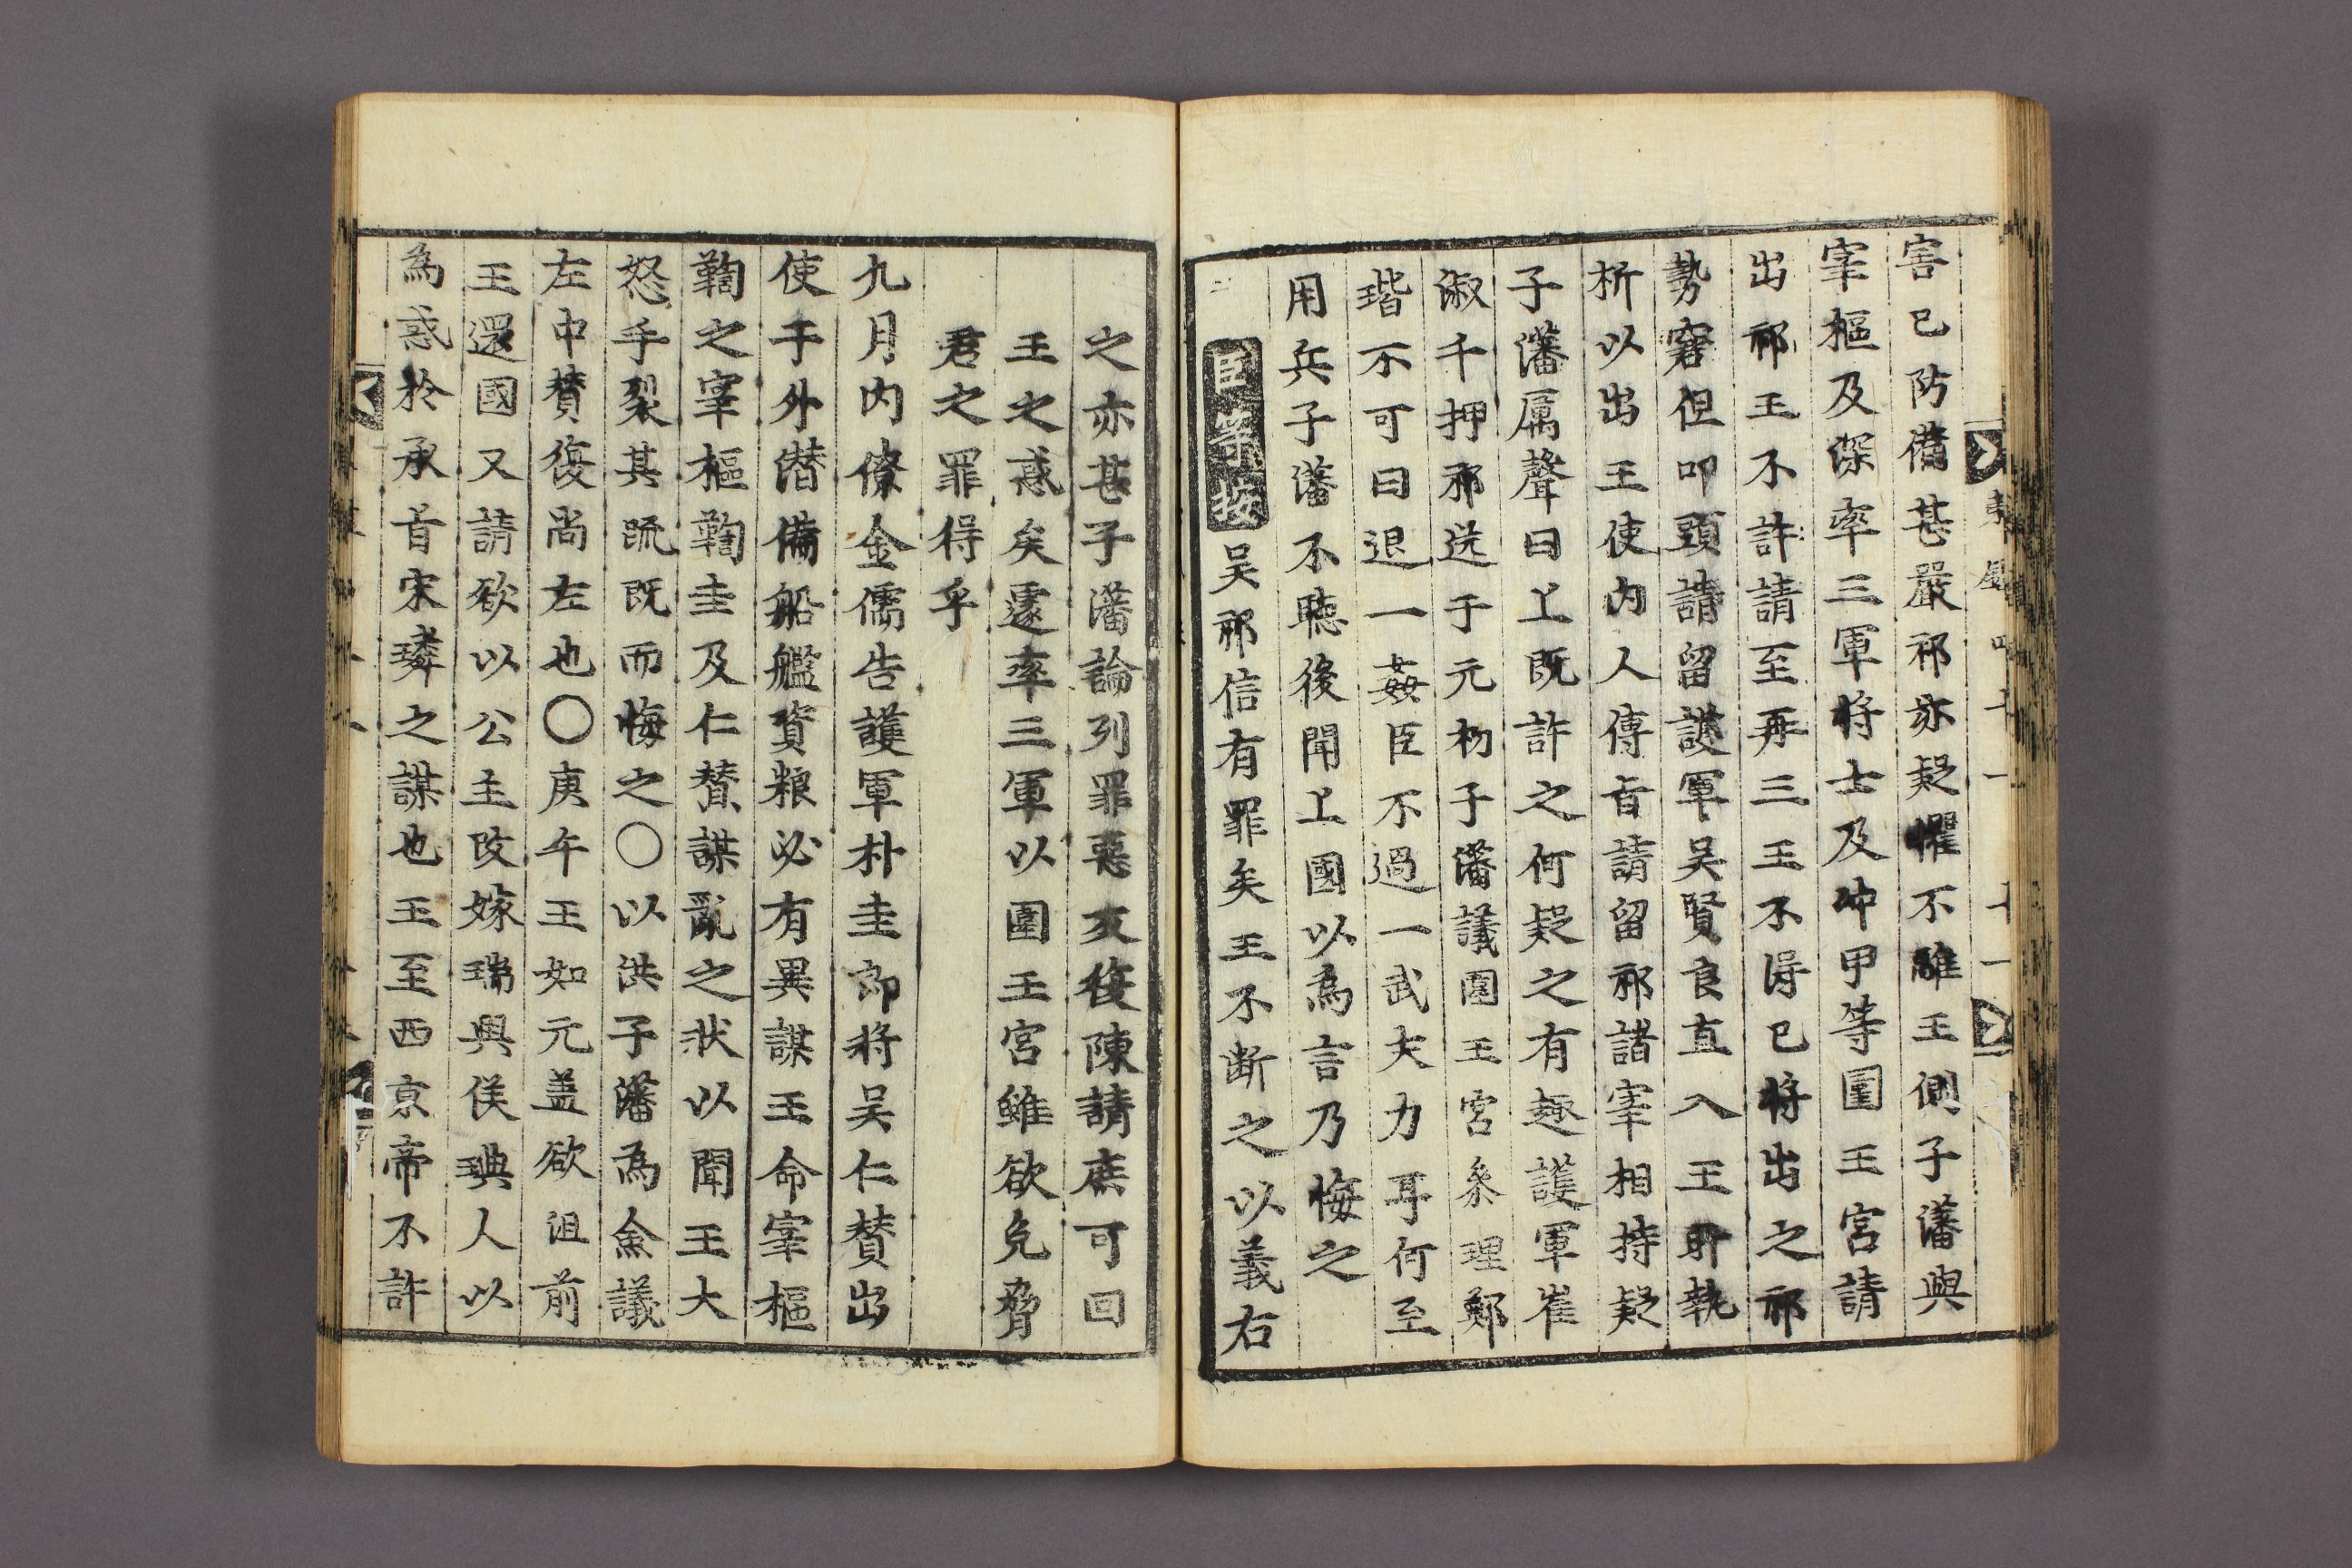 害已防備甚嚴祁亦疑懼不離王側子藩與
宰樞及深率三軍將士及冲甲等圍王宮請
出祁王不許請至再三王不得已將出之祁
勢窘但叩頭請留護軍吳賢良直入王所執
祈以出王使內人傳旨請留祁諸宰相持疑
子藩厲聲曰上既許之何疑之有趣護軍崔
淑千押祁送于元初子藩議圍王宮叅理鄭
瑎不可曰退一姦臣不過一武夫力耳何至
用兵子藩不聽後聞上國以爲言乃悔之
臣等按吳祁信有罪矣王不斷之以義右
之亦甚子藩論列罪惡反復陳請庶可回
王之惑矣遽率三軍以圍王宮雖欲免脅
君之罪得乎
九月內僚金儒告護軍朴圭郎將吳仁賛出
使于外潜備船艦資粮必有異謀王命宰樞
鞫之宰樞鞫圭及仁賛謀亂之状以聞王大
怒手裂其䟽既而悔之〇以洪子藩爲僉議
左中賛復尚左也〇庚午王如元盖欲沮前
王還國又請欲以公主改嫁瑞興侯琠人以
爲惑於承旨宋璘之謀也王至西京帝不許